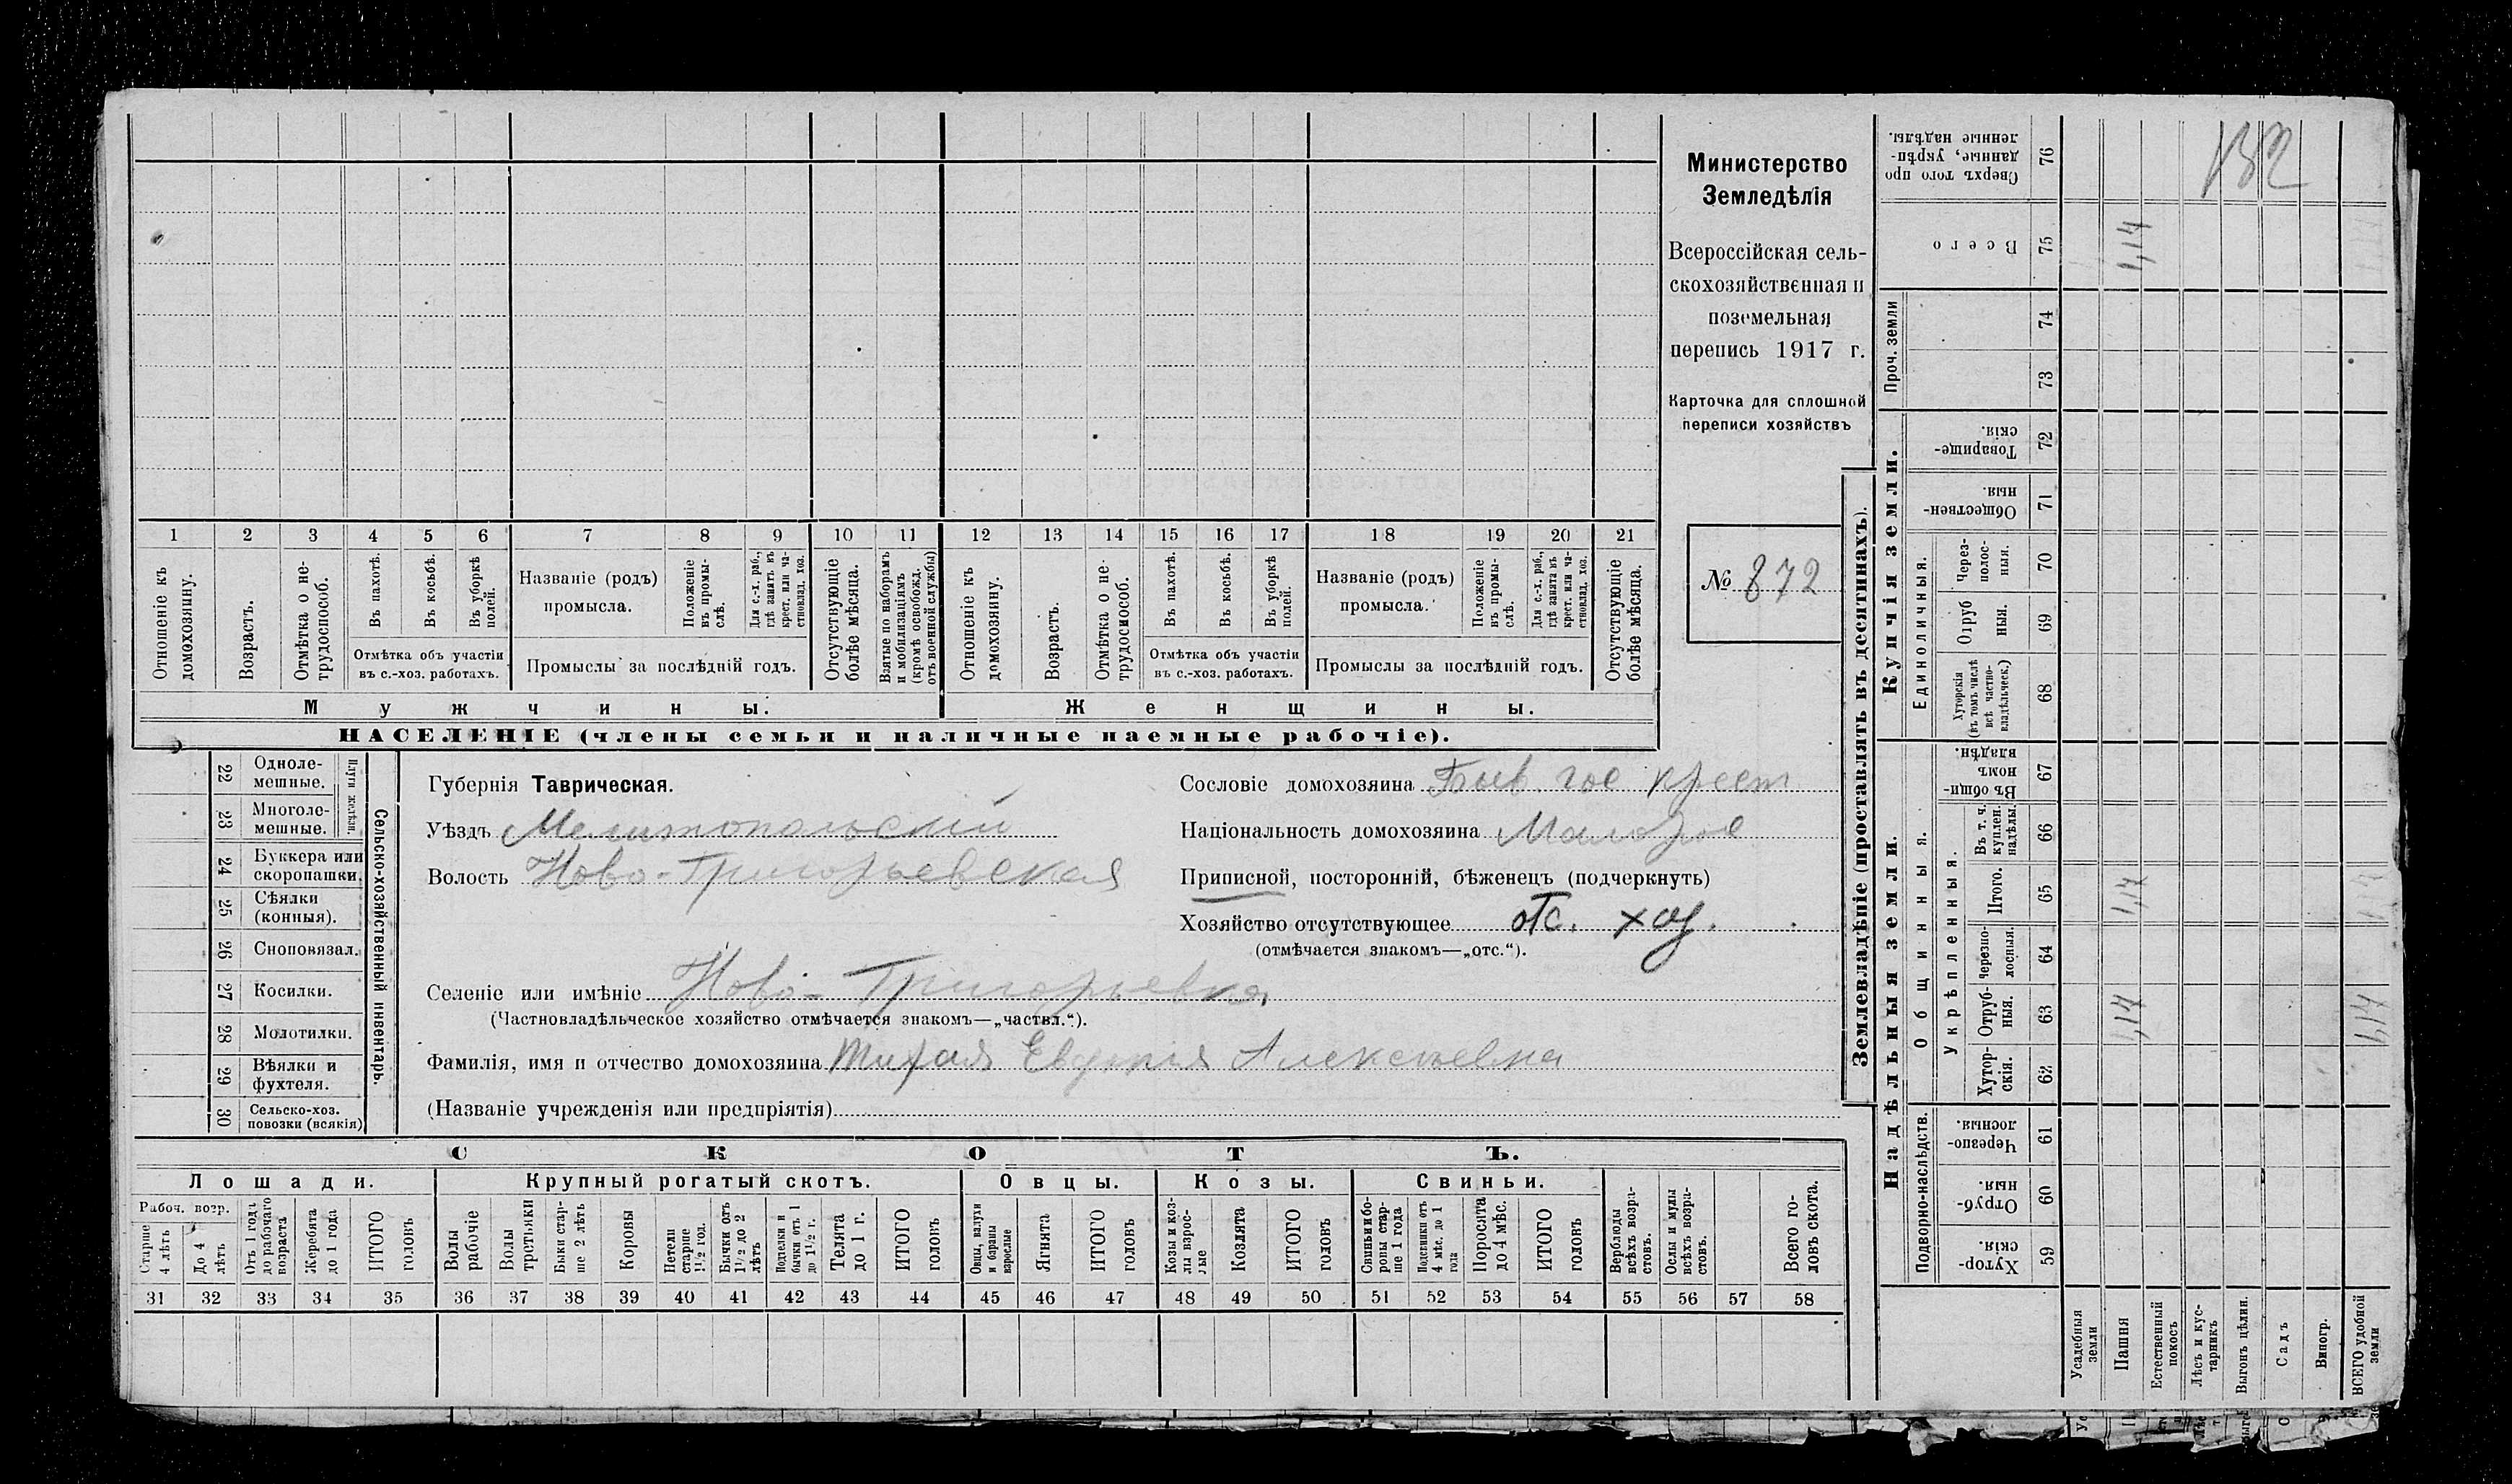 1 2 3 4 5 6 7 8 9 10 11 12 13 14 15 16 17 18 19 20 21
Отношеніе къ домохозяину.
Возрастъ.
Отмѣтка о не-трудоспособ.
Въ пахотѣ.
Въ косьбѣ.
Въ уборкѣ полей.
Отмѣтка объ участіи
въ с.-хоз. работахъ.
Названіе (родъ)
промысла.
Положеніе въ промы-слѣ.
Для с.-х. раб., гдѣ занятъ въ крест. или ча-стновлад. хоз.
Промыслы за послѣдній годъ.
Отсутствующіе болѣе мѣсяца.
Взятые по наборамъ и мобилизаціямъ (кромѣ освобожд. отъ военной службы)
Отношеніе къ домохозяину.
Возрастъ.
Отмѣтка о не-трудоспособ.
Въ пахотѣ.
Въ косьбѣ.
Въ уборкѣ полей.
Отмѣтка объ участіи
въ с.-хоз. работахъ.
Названіе (родъ)
промысла.
Положеніе въ промы-слѣ.
Для с.-х. раб., гдѣ занята въ крест. или ча-стновлад. хоз.
Промыслы за послѣдній годъ.
Отсутствующіе болѣе мѣсяца.
Мужчины. Женщины.
НАСЕЛЕНІЕ (члены семьи и наличные наемные рабочіе).
Министерство
Земледѣлія
Всероссійская сель-
скохозяйственная и
поземельная
перепись 1917 г.
Карточка для сплошной
переписи хозяйствъ
№ 872
Сельско-хозяйственный инвентарь.
Плуги желѣзн.
22 Одноле-мешные.
23 Многоле-мешные.
24 Буккера или скоропашки.
25 Сѣялки (конныя).
26 Сноповязал.
27 Косилки.
28 Молотилки.
29 Вѣялки и фухтеля.
30 Сельско-хоз. повозки (всякія)
Губернія Таврическая.
Уѣздъ Мелитопольскій
Волость Ново-Григорьевская
Сословіе домохозяина Быв. гос крест
Національность домохозяина Малорос
Приписной, посторонній, бѣженецъ (подчеркнуть)
Хозяйство отсутствующее отс. хоз.
(отмѣчается знакомъ—„отс.“).
Селеніе или имѣніе Ново-Григорьевка
(Частновладѣльческое хозяйство отмѣчается знакомъ—„частвл.“).
Фамилія, имя и отчество домохозяина Тихая Евдокія Алексѣевна
(Названіе учрежденія или предпріятія)
СКОТЪ.
Лошади. Крупный рогатый скотъ. Овцы. Козы. Свиньи.
Рабоч. возр.
Старше 4 лѣтъ
До 4 лѣтъ
Отъ 1 года до рабочаго возраста
Жеребята до 1 года
ИТОГО головъ
Волы рабочіе
Волы третьяки
Быки стар-ше 2 лѣтъ
Коровы
Нетели старше 1½ год.
Бычки отъ 1½ до 2 лѣтъ
Подтелки и бычки отъ 1 до 1½ г.
Телята до 1 г.
ИТОГО головъ
Овцы, валухи и бараны взрослые
Ягнята
ИТОГО головъ
Козы и коз-лы взрос-лые
Козлята
ИТОГО головъ
Свиньи и бо-ровы стар-ше 1 года
Подсвинки отъ 4 мѣс. до 1 года
Поросята до 4 мѣс.
ИТОГО головъ
Верблюды всѣхъ возра-стовъ.
Ослы и мулы всѣхъ возра-стовъ.
Всего го-ловъ скота.
31 32 33 34 35 36 37 38 39 40 41 42 43 44 45 46 47 48 49 50 51 52 53 54 55 56 57 58
Землевладѣніе (проставлять въ десятинахъ).
Надѣльныя земли.
Купчія земли.
Проч. земли
Подворно-наслѣдств.
Общинныя.
Укрѣпленныя.
Единоличныя.
Сверхъ того про данные, укрѣп-ленные надѣлы. 76
132
Всего 75 1,14
74
73
Товарище-скія. 72
Обществен-ныя. 71
Через-полос-ныя. 70
Отруб ныя. 69
Хуторскія (въ томъ числѣ всѣ частно-владѣльческ.) 68
Въ общи-номъ владѣн. 67
Въ т. ч. куплен. надѣлы. 66
Итого. 65 1,14
Черезпо-лосныя. 64
Отруб-ныя. 63 1,14 1,14
Хутор-скія. 62
Черезпо-лосныя. 61
Отруб-ныя. 60
Хутор-скія. 59
Усадебныя земли
Пашня
Естественный покосъ
Лѣсъ и кус-тарникъ
Выгонъ цѣлин.
Садъ
Виногр.
ВСЕГО удобной земли